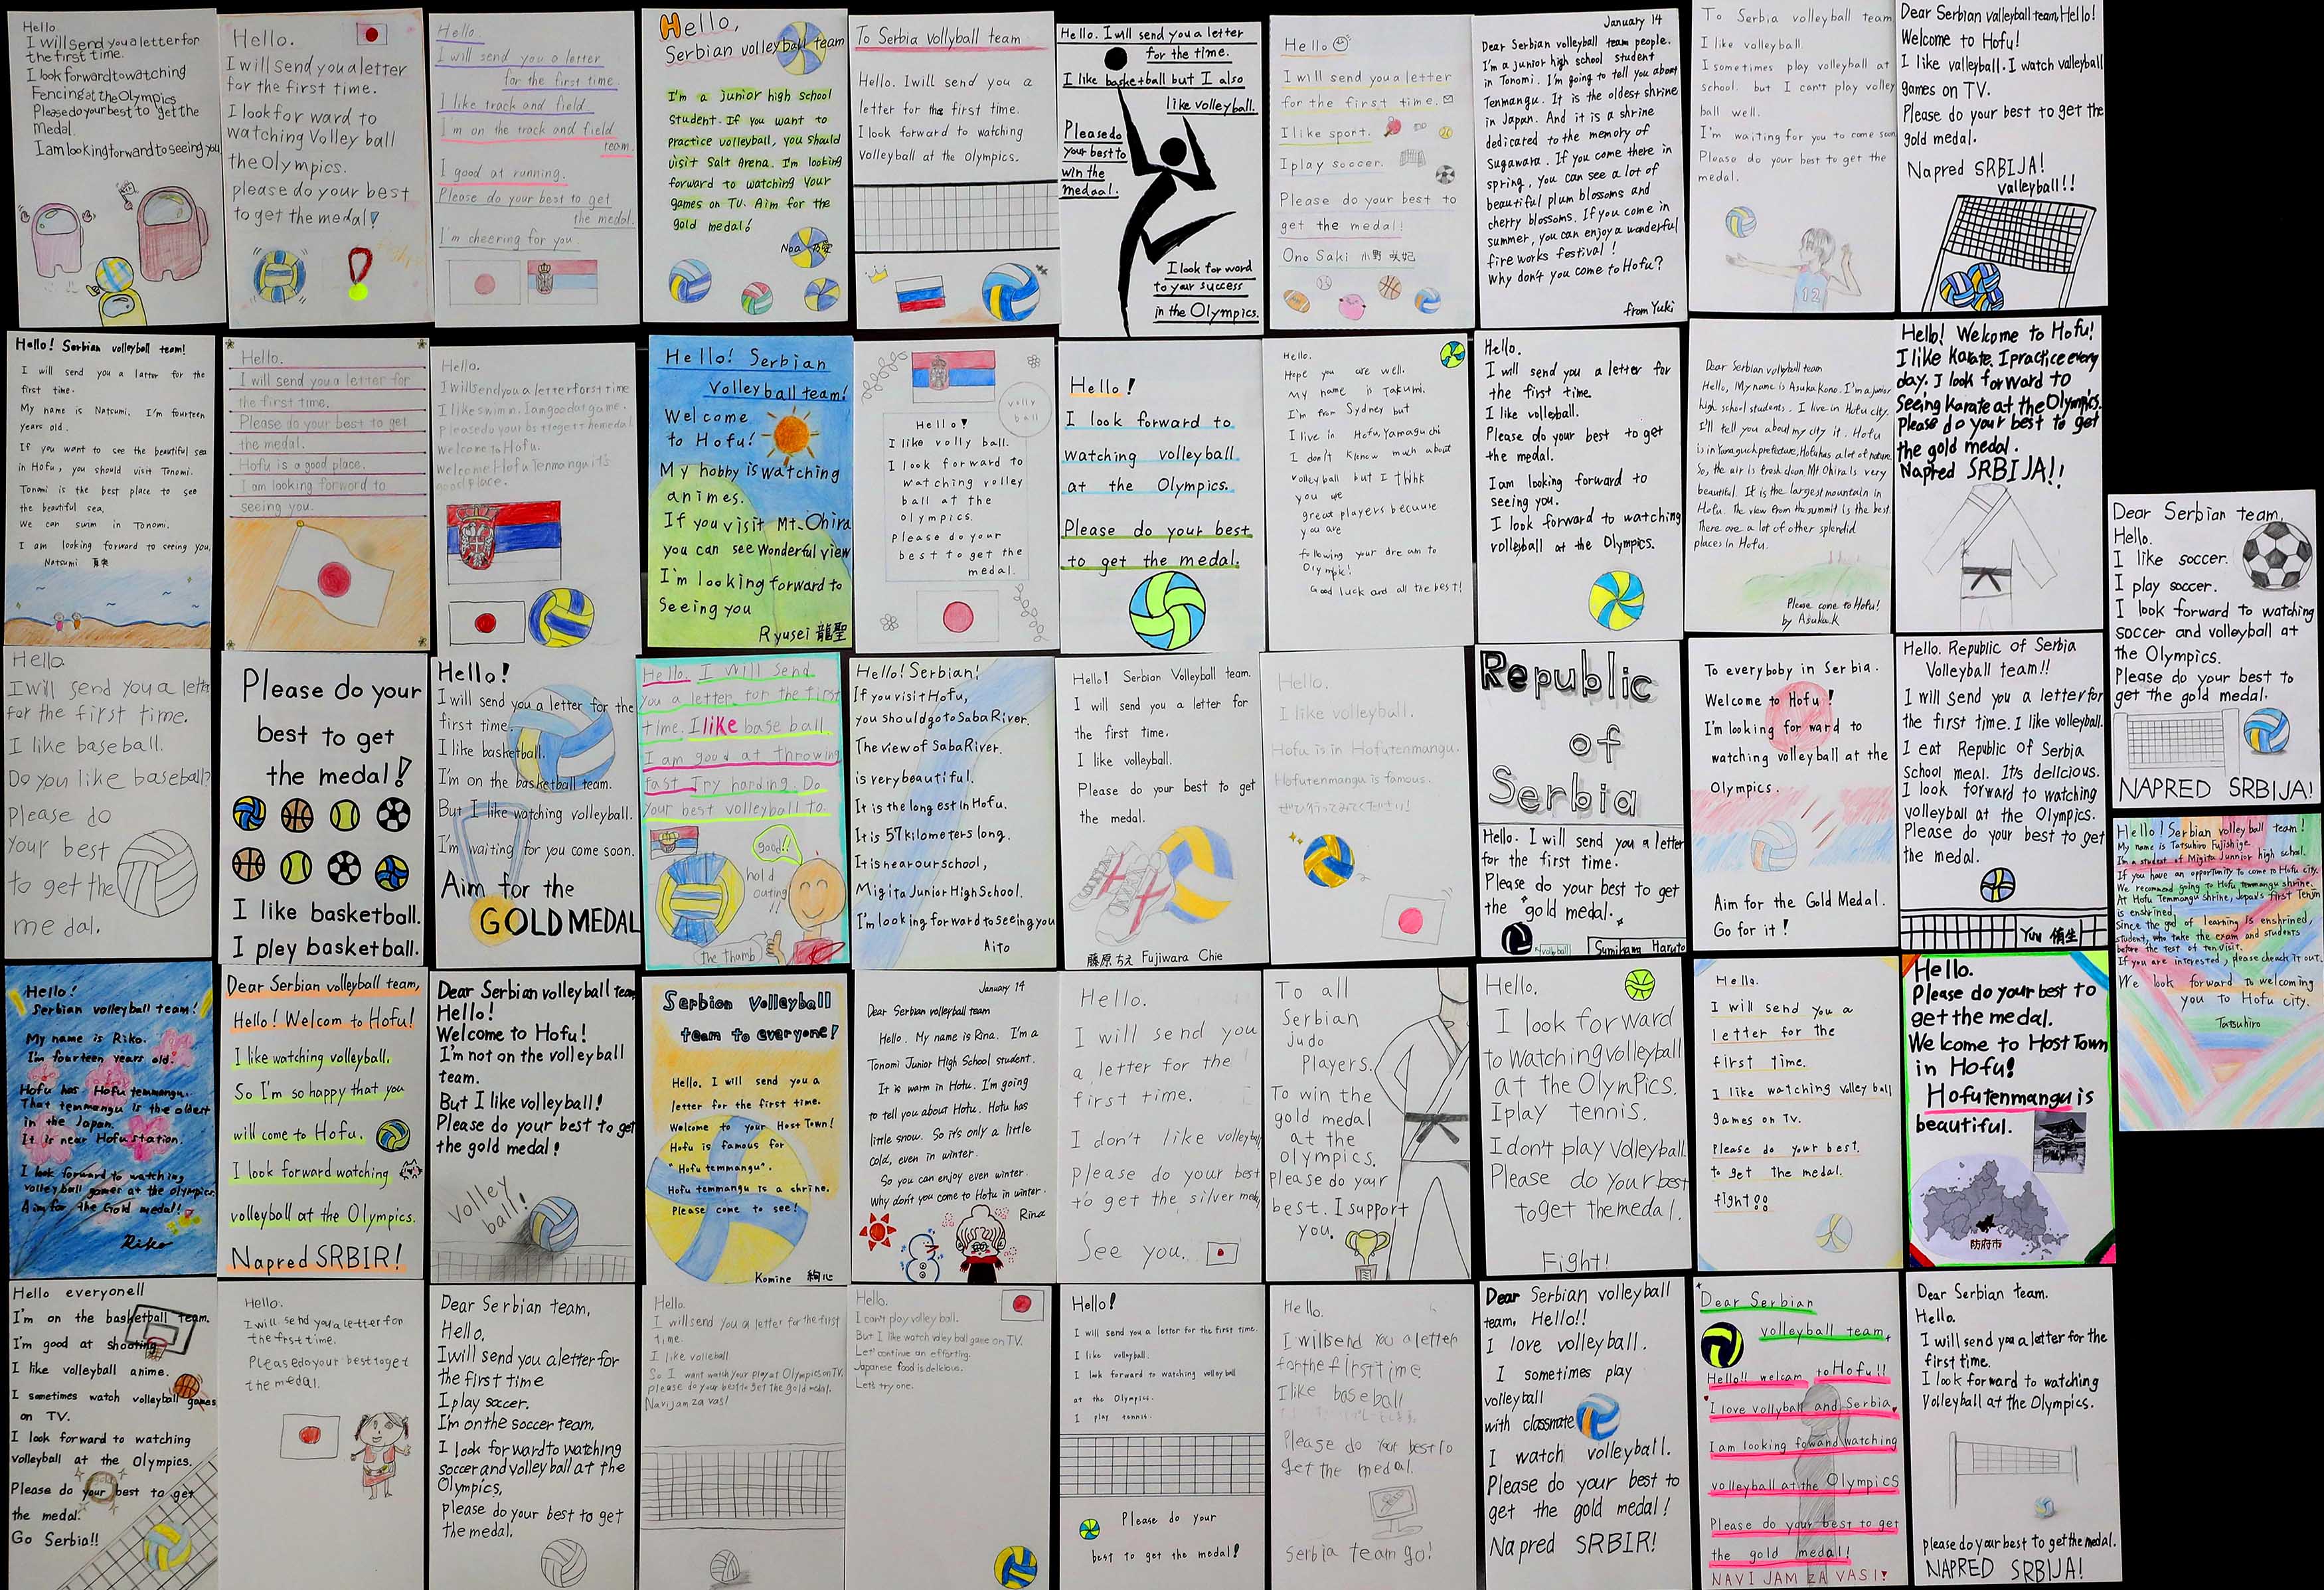 Hello.
I will send you a letter for
the first time.
I look forward to watching
Fencing at the Olympics
Please do your best to get the
medal.
I am looking forward to seeing you
Hello.
I will send you a letter
for the first time.
I look for ward to
watching Volley ball
the Olympics.
please do your best
to get the medal!
Hello.
I will send you a letter
for the first time.
I like track and field
I'm on the track and field
team.
I good at running.
Please do your best to get
the medal.
I'm cheering for you.
Hello,
Serbian volleyball team
I'm a junior high school
student. If you want to
practice volleyball, you should
visit Salt Arena. I'm looking
forward to watching your
games on TV. Aim for the
gold medal!
Noa
To Serbia Vollyball team
Hello. I will send you a
letter for the first time.
I look forward to watching
Volleyball at the Olympics.
Hello. I will send you a letter
for the time.
I like basketball but I also
like volleyball.
Please do
your best to
win the
medaal.
I look for word
to your success
in the Olympics.
Hello
I will send you a letter
for the first time.
I like sport.
I play soccer.
Please do your best to
get the medal!
Ono Saki 小野 咲妃
January 14
Dear Serbian volleyball team people.
I'm a junior high school student
in Tonomi. I'm going to tell you about
Tenmangu. It is the oldest shrine
in Japan. And it is a shrine
dedicated to the memory of
Sugawara. If you come there in
spring, you can see a lot of
beautiful plum blossoms and
cherry blossoms. If you come in
summer, you can enjoy a wonderful
fire works festival!
Why don't you come to Hofu?
from Yuki
To Serbia volleyball team
I like volleyball.
I sometimes play volleyball at
school. but I can't play volley
ball well.
I'm waiting for you to come soon
Please do your best to get the
medal.
12
Dear Serbian valleyball team, Hello!
Welcome to Hofu!
I like valleyball. I watch valleyball
games on TV.
Please do your best to get the
gold medal.
Napred SRBIJA!
valleyball!!
Hello! Serbian volleyball team!
I will send you a latter for the
first time.
My name is Natsumi. I'm fourteen
years old.
If you want to see the beautiful sea
in Hofu, you should visit Tonomi.
Tonomi is the best place to see
the beautiful sea.
We can swim in Tonomi.
I am looking forward to seeing you.
Natsumi
Hello.
I will send you a letter for
the first time.
Please do your best to get
the medal.
Hofu is a good place.
I am looking forward to
seeing you.
Hello.
I will send you a letter forst time
I like swimn. I am good at game.
please do your best to gett he medal.
welcome to Hofu.
Welcome Hofu Tenmangu it's
good place.
Hello! Serbian
Volleyball team!
Welcome
to Hofu!
My hobby is watching
animes.
If you visit Mt. Ohira
you can see Wonderful view
I'm looking forward to
Seeing you
Ryusei 龍聖
volly
ball
Hello!
I like volly ball.
I look forward to
watching volley
ball at the
olympics.
Please do your
best to get the
medal.
Hello!
I look forward to
watching volleyball
at the Olympics.
Please do your best
to get the medal.
Hello.
Hope you are well.
My name is Takumi.
I'm from Sydney but
I live in Hofu, Yamaguchi
I don't know much about
volleyball but I think
you are
great players because
you are
following your dream to
Olympik!
Good luck and all the best!
Hello.
I will send you a letter for
the first time.
I like volleball.
Please do your best to get
the medal.
I am looking forward to
seeing you.
I look forward to watching
volleyball at the Olympics.
Dear Serbian volleyball team
Hello, My name is Asuka Kono. I'm a junior
high school students. I live in Hofu city.
I'll tell you about my city it. Hofu
is in Yamaguchi prefecture, Hofu has a lot of nature.
So, the air is fresh clean. Mt Ohira is very
beautiful. It is the largest mountain in
Hofu. The view from the summit is the best.
There are a lot of other splendid
places in Hofu.
Please come to Hofu!
by Asuka.K
Hello! Welcome to Hofu!
I like karate. I practice every
day. I look forward to
Seeing karate at the Olympics.
Please do your best to get
the gold medal.
Napred SRBIJA!!
Dear Serbian team,
Hello.
I like soccer.
I play soccer.
I look forward to watching
soccer and volleyball at
the Olympics.
Please do your best to
get the gold medal.
NAPRED SRBIJA!
Hello
I will send you a lette
for the first time.
I like baseball.
Do you like baseball?
Please do
your best
to get the
medal.
Please do your
best to get
the medal!
I like basketball.
I pley basketball.
Hello!
I will send you a letter for the
first time.
I like basketball.
I'm on the basketball team.
But I like watching volleyball.
I'm waiting for you come soon.
Aim for the
GOLD MEDAL
Hello. I will send
you a letter for the first
time. I like base ball.
I am good at throwing
fast Try harding. Do
your best volleyball to.
good!!
hold
outing
!!
the thumb
Hello! Serbian!
If you visit Hofu,
you should go to Saba River.
The view of Saba River.
is very beautiful.
It is the long est in Hofu.
It is 57 kilometers long.
It is near our school,
Migita Junior High School.
I'm looking forward to seeing you
Aito
Hello! Serbian Volleyball team.
I will send you a letter for
the first time.
I like volleyball.
Please do your best to get
the medal.
藤原 ちえ Fujiwara Chie
Hello.
I like volleyball.
Hofu is in Hofutenmangu.
Hofutenmangu is famous.
ぜひ行ってみてください!
Republic
of
Serbia
Hello. I will send you a letter
for the first time.
Please do your best to get
the "gold medal."
volleyball
Sumikawa Haruto
To everyboby in Serbia.
Welcome to Hofu!
I'm looking for ward to
watching volleyball at the
Olympics.
Aim for the Gold Medal.
Go for it!
Hello. Republic of Serbia
Volleyball team!!
I will send you a letter for
the first time. I like volleyball.
I eat Republic of Serbia
School meal. It's delicious.
I look forward to watching
volleyball at the Olympics.
Please do your best to get
the medal.
Yuu 侑生
Hello! Serbian volley ball team!
My name is Tatsuhiro Fujishige
I'm a student of Migita Junnior high school.
If you have an opportunity to come to Hofu city.
We recommend going to Hofu temmangu shrine.
At Hofu Temmangu shrine, Japan's first Tenjin
is enshrined.
Since the god of learning is enshrined,
student, who take the exam and students
before the test of ten visit.
If you are interested, please cheack it out.
We look forward to welcoming
you to Hofu city.
Tatsuhiro
Hello!
Serbian volleyball team!
My name is Riko.
I'm fourteen years old.
Hofu has Hofu temmangu.
That temmangu is the oldest
in the Japan.
It is near Hofu station.
I look forward to watching
volleyball games at the olympics.
Aim for the Gold medal!
Riko
Dear Serbian volleyball team,
Hello! Welcom to Hofu!
I like watching volleyball.
So I'm so happy that you
will come to Hofu.
I look forward watching
volleyball at the Olympics.
Napred SRBIR!
Dear Serbian volleyball team,
Hello!
Welcome to Hofu!
I'm not on the volleyball
team.
But I like volleyball!
Please do your best to get
the gold medal!
Volley
ball!
Serbian Volleyball
team to everyone!
Hello. I will send you a
letter for the first time.
Welcome to your Host Town!
Hofu is famous for
"Hofu temmangu".
Hofu temmangu is a shrine.
Please come to see!
Komine 絢心
January 14
Dear Serbian volleyball team
Hello. My name is Rina. I'm a
Tonomi Junior High School student.
It is warm in Hofu. I'm going
to tell you about Hofu. Hofu has
little snow. So it's only a little
cold, even in winter.
So you can enjoy even winter.
Why don't you come to Hofu in winter.
Rina
Hello.
I will send you
a letter for the
first time.
I don't like volleyball
please do your best
to get the silver medal,
See you.
To all
Serbian
judo
Players.
To win the
gold medal
at the
olympics.
Please do your
best. I support
you.
Hello.
I look forward
to watching volleyball
at the Olympics.
I play tennis.
I don't play volleyball.
Please do your best
to get the medal.
Fight!
Hello.
I will send you a
letter for the
first time.
I like watching volley ball
games on TV.
Please do your best.
to get the medal.
fight!!
Hello.
Please do your best to
get the medal.
We lcome to Host Town
in Hofu!
Hofutenmangu is
beautiful.
防府市
Hello everyone!!
I'm on the basketball team.
I'm good at shooting
I like volleyball anime.
I sometimes watch volleyball games
on TV.
I look forward to watching
volleyball at the Olympics.
Please do your best to get
the medal.
Go Serbia!!
Hello.
I will send you a letter for
the frst time.
Please do your best to get
the medal.
Dear Serbian team,
Hello,
I will send you a letter for
the first time
I play saccer.
I'm on the soccer team.
I look for ward to watching
soccer and volley ball at the
Olympics,
please do your best to get
the medal.
Hello.
I will send you a letter for the first
time.
I like volleball
So I want watch your play at Olympics on TV.
please do your best to get the gold medal.
Navijam za vas!
Hello.
I can't play volley ball.
But I like watch volley ball game on TV.
Let' continue an efforting.
Japanese food is delicious.
Let's try one.
Hello!
I will send you a letter for the first time.
I like volleyball.
I look forward to watching volleyball
at the Olympics.
I play tennis.
Please do your
best to get the medal!
Hello.
I will send you a letter
for the first time
I like baseball
Please do your best to
get the medal.
Serbia team go!
Dear Serbian volleyball
team, Hello!!
I love volleyball.
I sometimes play
volleyball
with classmate
I watch volleyball.
Please do your best to
get the gold medal!
Napred SRBIR!
Dear Serbian
volleyball team,
Hello!! welcam to Hofu!!
I love vollyball and Serbia.
I am looking foward watching
volleyball at the Olympics
Please do your best to get
the gold medal!
NAVIJAM ZA VAS!
Dear Serbian team.
Hello.
I will send you a letter for the
first time.
I look for ward to watching
Volleyball at the Olympics.
please do your best to get the medal.
NAPRED SRBIJA!